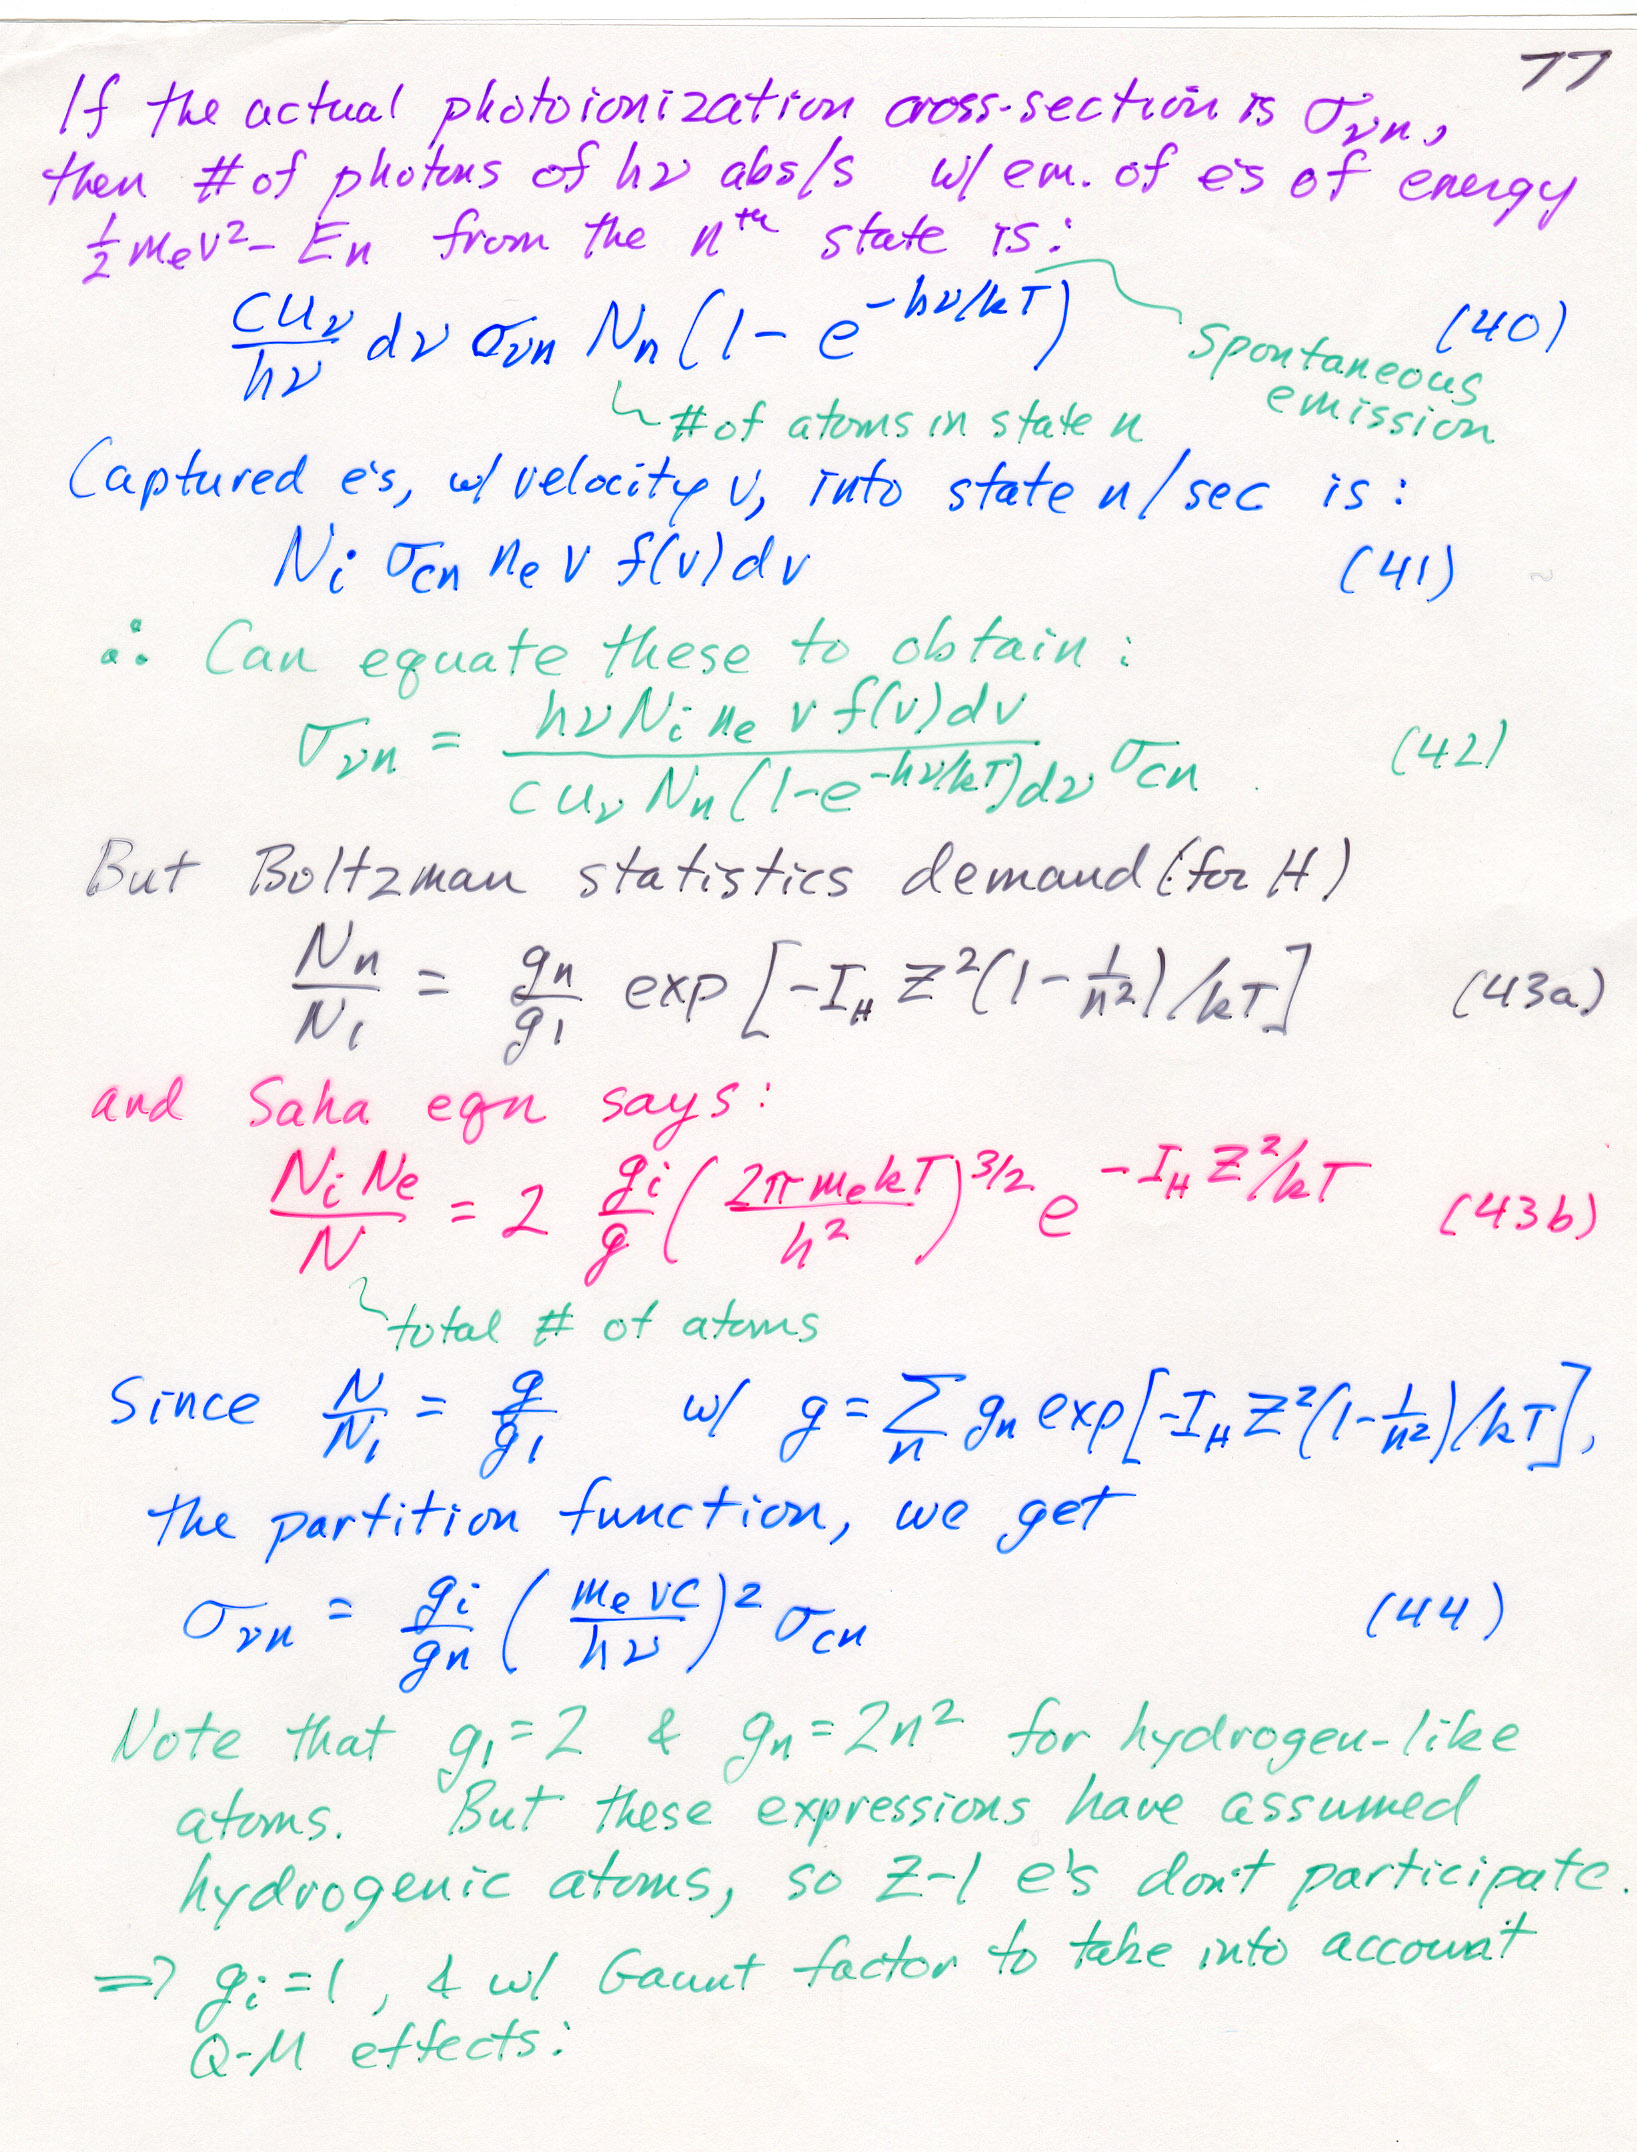 77
If the actual photoionization cross-section is σ_νn,
then # of photons of hν abs/s w/ em. of e's of energy
½ m_e v² - E_n from the n^th state is:
cu_ν/hν dν σ_νn N_n (1 - e^(-hν/kT)) (40)
Spontaneous
emission
# of atoms in state n
Captured e's, w/ velocity v, into state n/sec is:
N_i σ_cn n_e v f(v) dv (41)
∴ Can equate these to obtain:
σ_νn = hν N_i n_e v f(v) dv / cu_ν N_n (1-e^(-hν/kT)) dν σ_cn (42)
But Boltzman statistics demand (for H)
N_n/N_1 = g_n/g_1 exp [-I_H Z² (1 - 1/n²) /kT] (43a)
and Saha eqn says:
N_i N_e / N = 2 g_i/g (2π m_e kT / h²)^3/2 e^(-I_H Z²/kT) (43b)
total # of atoms
Since N/N_1 = g/g_1 w/ g = Σ_n g_n exp[-I_H Z² (1 - 1/n²) /kT],
the partition function, we get
σ_νn = g_i/g_n (m_e vc / hν)² σ_cn (44)
Note that g_1 = 2 & g_n = 2n² for hydrogen-like
atoms. But these expressions have assumed
hydrogenic atoms, so Z-1 e's don't participate.
⇒ g_i = 1, & w/ Gaunt factor to take into account
Q-M effects: